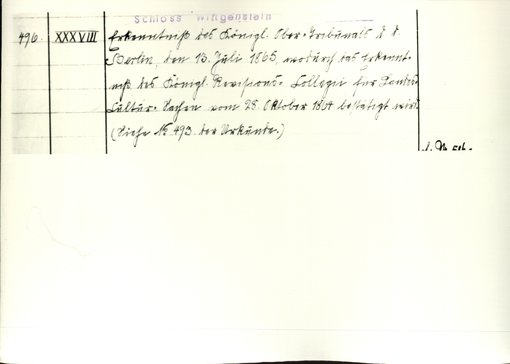 Schloss Wittgenstein
496. XXXVIII Erkenntniß des Königl. Ober-Tribunals d d
Berlin, den 13. Juli 1865, wodurch das Erkennt-
niß des Königl. Revisions-Collegii für Landes-
Cultur-Sachen vom 28. Oktober 1864 bestätigt wird
(Siehe No 493 der Urkunde.)